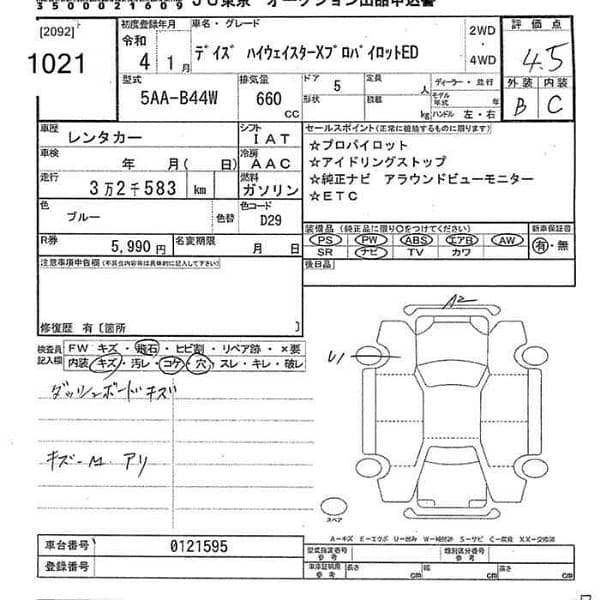 35000021609 JU東京 オークション出品申込書
[2092]
1021
初度登録年月
令和
4 1月
車名・グレード
デイズ ハイウェイスターXプロパイロットED
2WD
・
4WD
評価点
4.5
外装 内装
B C
型式
5AA-B44W
排気量
660 CC
ドア 5
形状
定員 人
積載 kg
ディーラー・並行
モデル年式 年
ハンドル 左・右
車歴 レンタカー
シフト IAT
車検 年 月(日)
冷房 AAC
走行 3万2千583 km
燃料 ガソリン
色 ブルー 色替
色コード D29
R券 5,990円
名変期限 月 日
セールスポイント(正常に機能するものに限ります)
☆プロパイロット
☆アイドリングストップ
☆純正ナビ アラウンドビューモニター
☆ETC
装備品(純正品に限り○をつけてください)
新車保証書
PS PW ABS エアB AW
有・無
SR ナビ TV カワ
後日品
注意事項申告欄(不具合内容等は具体的に記入して下さい)
修復歴 有[箇所 ]
検査員記入欄
FW キズ・飛石・ヒビ割・リペア跡・×要
内装 キズ・汚レ・コゲ・穴・スレ・キレ・破レ
ダッシュボードキズ
キズ-M アリ
A2
U1
スペア
A-キズ E-エクボ U-凹み W-補修跡 S-サビ C-腐蝕 XX-交換済
車台番号 0121595
登録番号
型式指定番号 参考
類別区分番号 参考
車庫証明用 参考
長さ cm
幅 cm
高さ cm